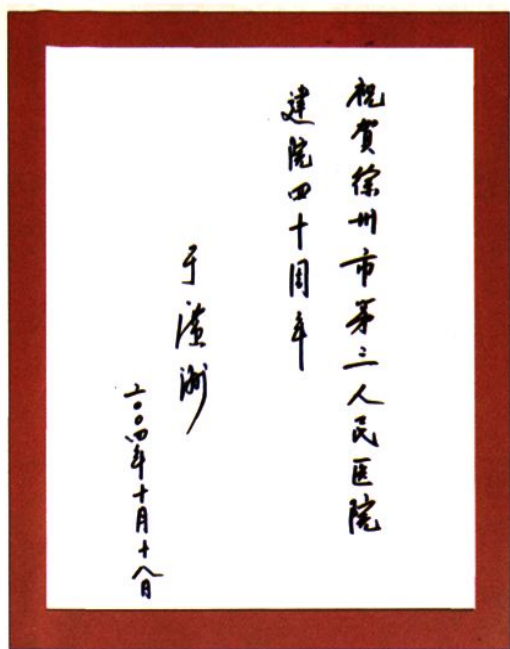 祝賀徐州市第三人民医院
建院四十周年
于廣洲
二〇〇四年十月十八日